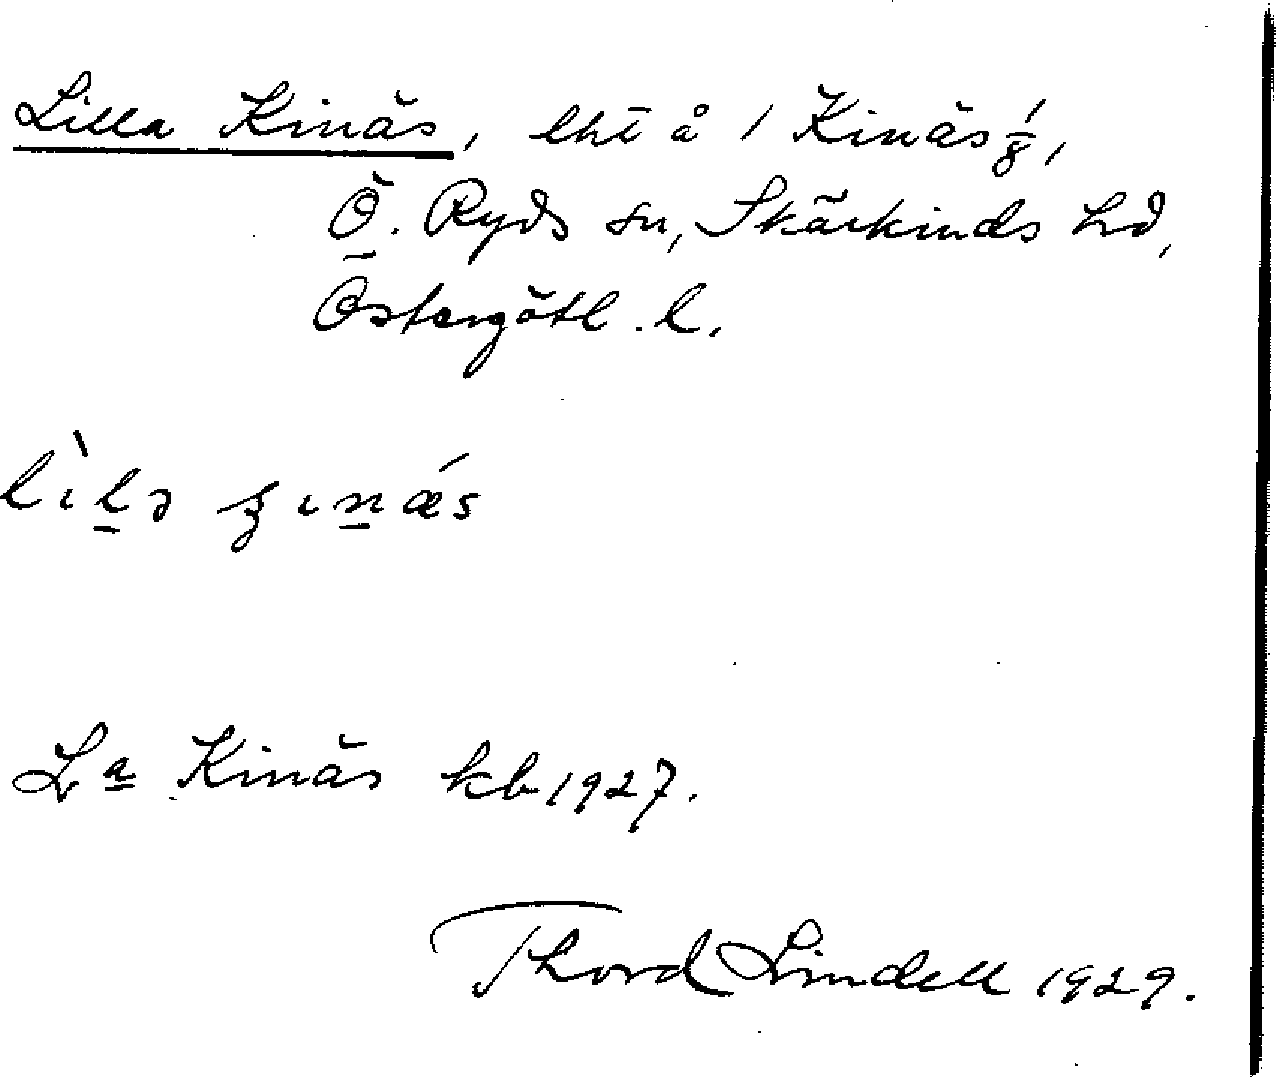 Lilla Kinäs, lht å 1 Kinäs 1/8,
Ö. Ryds sn, Skärkinds hd,
Östergötl. l.
lìlə ʒınǽs
La Kinäs kb 1927.
Thord Lindell 1929.